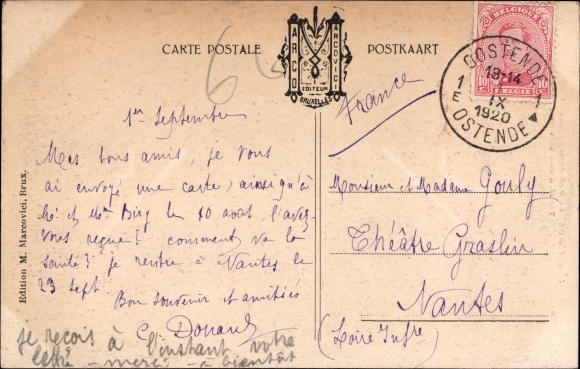 CARTE POSTALE
POSTKAART
MARCO MARCOVICI
EDITEUR
BRUXELLES
BELGIQUE
BELGIE
OOSTENDE
13-14
1 1
IX
E
1920
OSTENDE
France
1er Septembre
Mes bons amis, je vous
ai envoyé une carte, ainsi qu'à
Mr et Mme le 10 août, l'avez-
vous reçue? comment va la
santé? je rentre à Nantes le
23 sept.
Bon souvenir et amitiés
je reçois à l'instant votre
lettre - merci - à bientôt
Monsieur et Madame Gouly
Théâtre Graslin
Nantes
(Loire Infre)
Edition M. Marcovici, Brux.